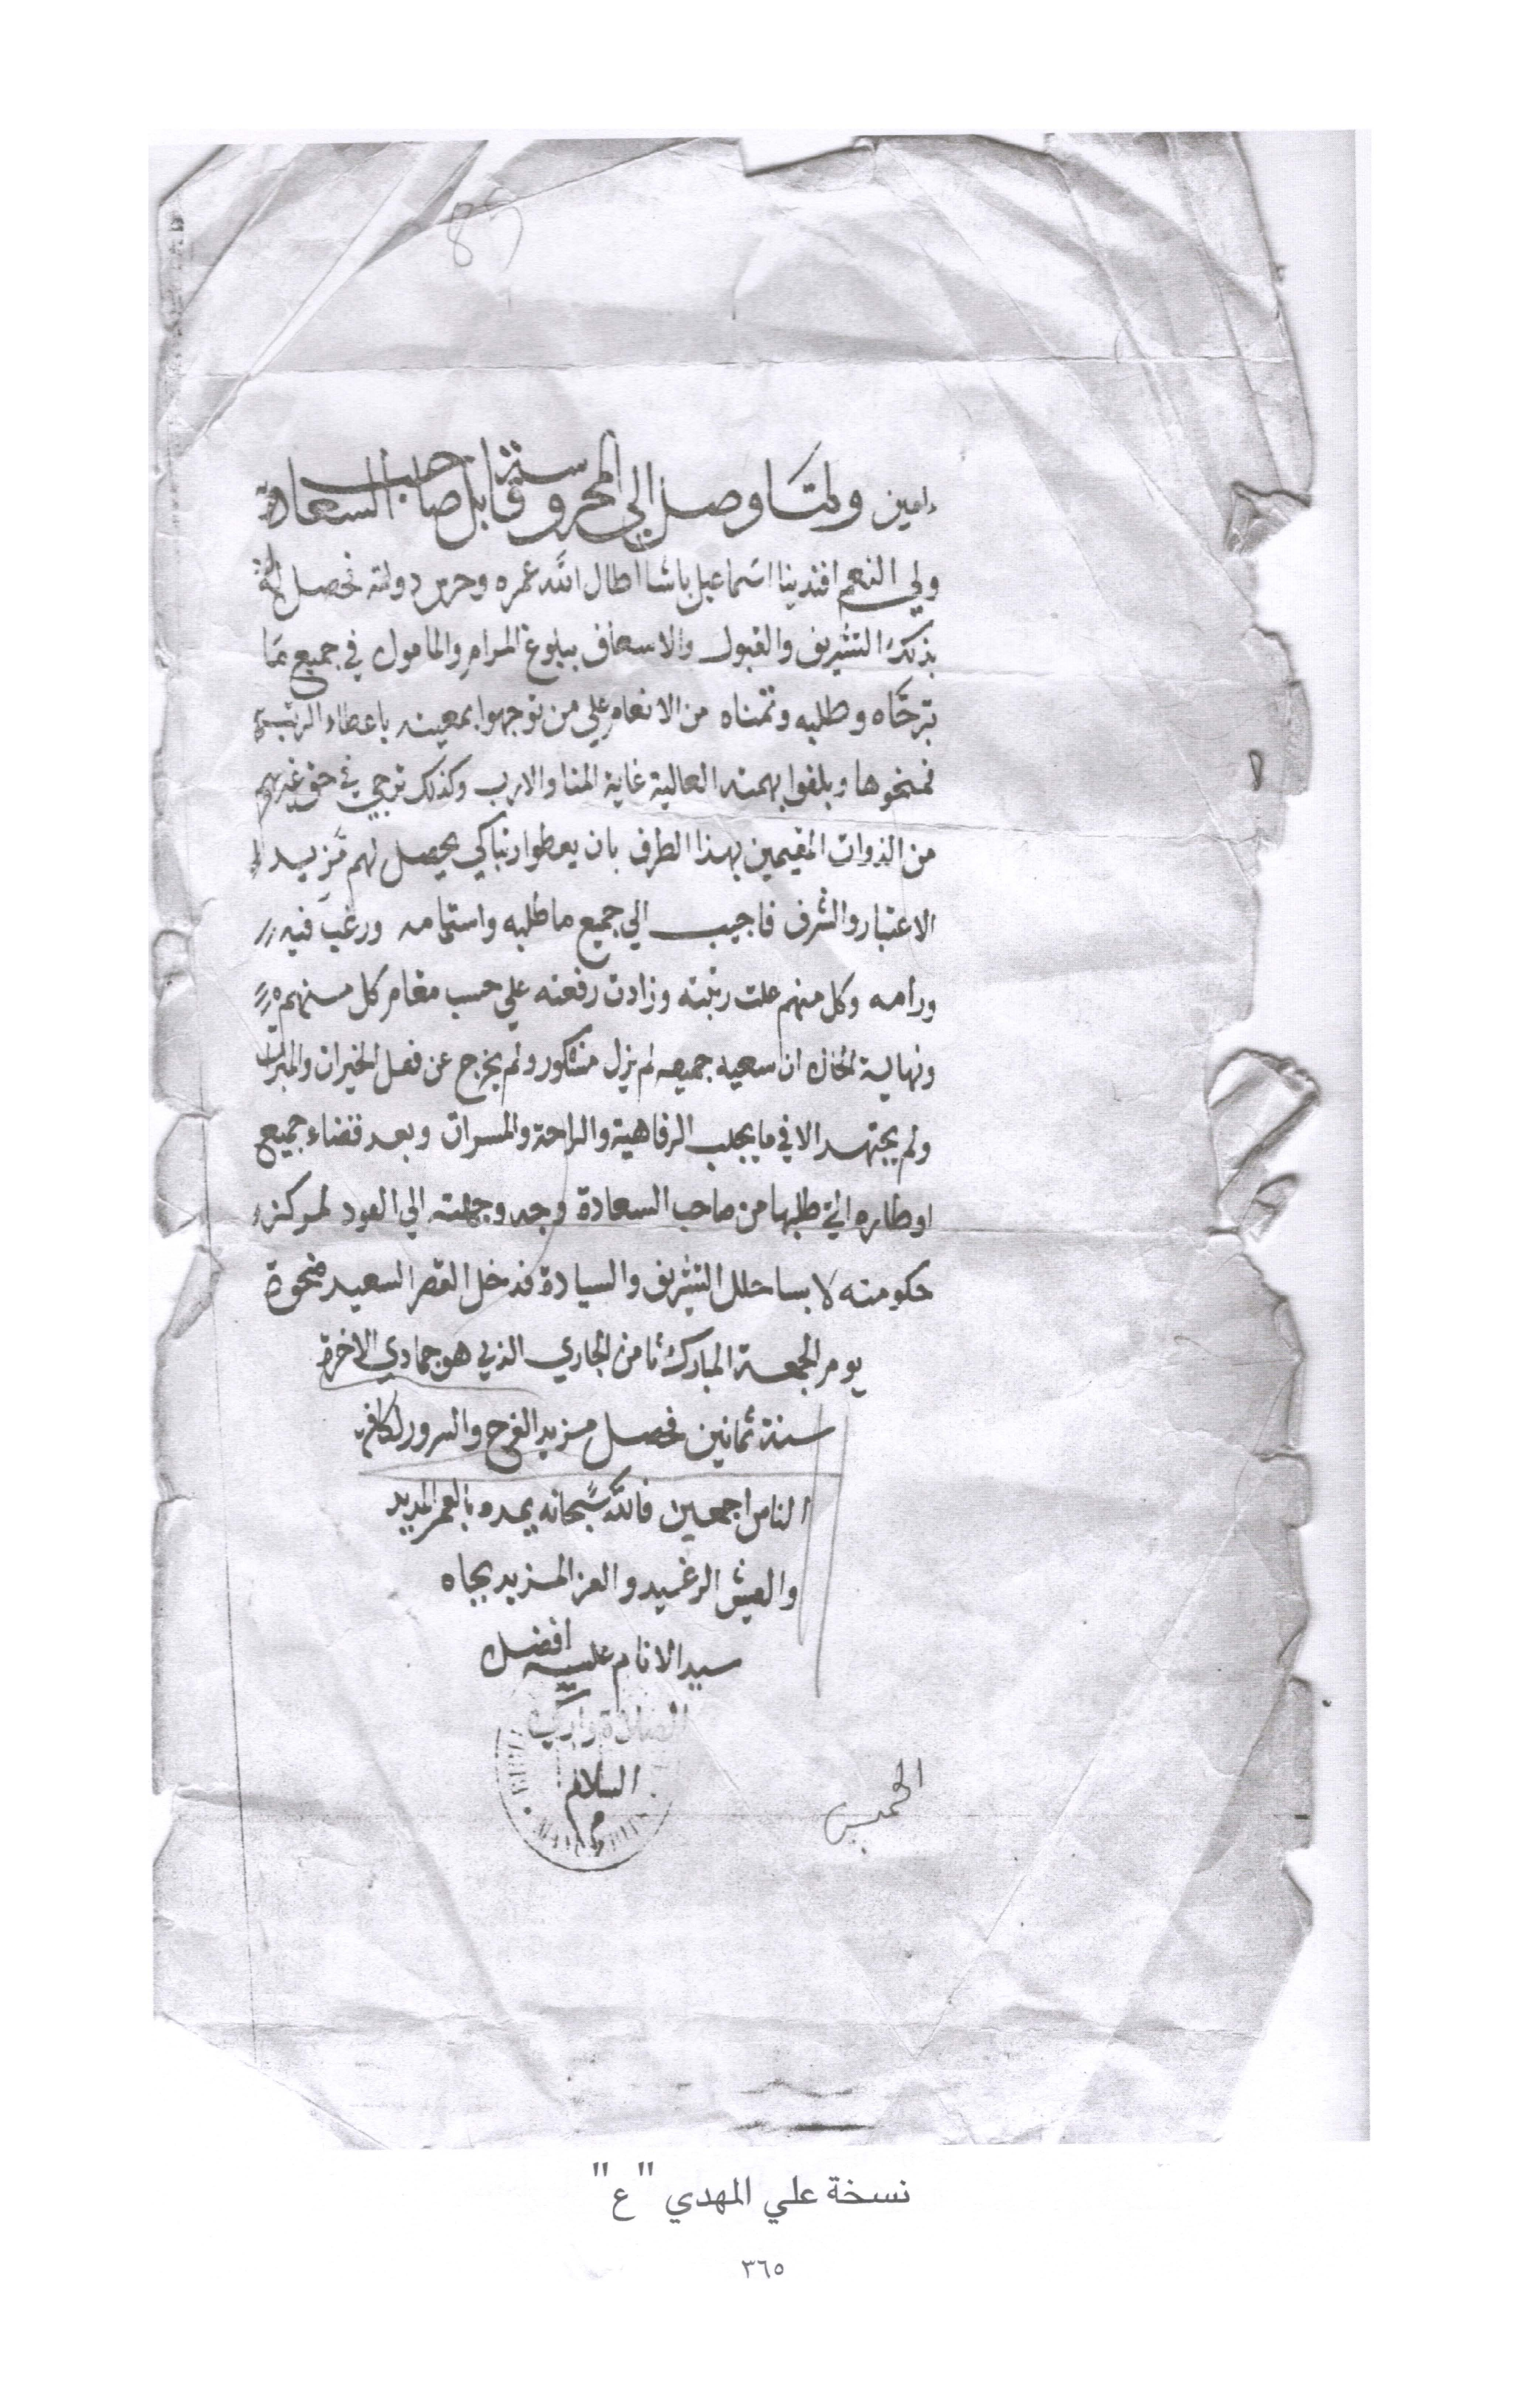 89
امين ولما وصل الي المحروسة قابل صاحب السعادة
ولي النعم افندينا اسماعيل باشا اطال الله عمره وحرس دولته فحصل له
بذلك التشريف والقبول والاسعاف ببلوغ المرام والمامول في جميع ما
ترجاه وطلبه وتمناه من الانعام علي من توجهوا بمعيته باعطاء الرتب
فمنحوها وبلغوا بهمته العالية غاية المنا والارب وكذلك ترجي في حق غيرهم
من الذوات المقيمين بهذا الطرف بان يعطوا رتبا كي يحصل لهم مزيد
الاعتبار والشرف فاجيب الي جميع ما طلبه واستمامه ورغب فيه
ورامه وكل منهم علت رتبته وزادت رفعته علي حسب مقام كل منهم
ونهاية الحال ان سعيه جميعه لم يزل مشكور ولم يخرج عن فعل الخيرات والمبرات
ولم يجتهد الا في ما يجلب الرفاهية والراحة والمسرات وبعد قضاء جميع
اوطاره التي طلبها من صاحب السعادة وجد وجهته الي العود لمركز
حكومته لابسا حلل التشريف والسيادة فدخل القصر السعيد ضحوة
يوم الجمعة المبارك ثامن الجاري الذي هو جمادي الاخرة
سنة ثمانين فحصل مزيد الفرح والسرور لكافة
الناس اجمعين فالله سبحانه يمده بالعمر المديد
والعيش الرغيد والعز المزيد بجاه
سيد الانام عليه افضل
الصلاة وازكي
السلام
م
الخميس
نسخة علي المهدي "ع"
٣٦٥